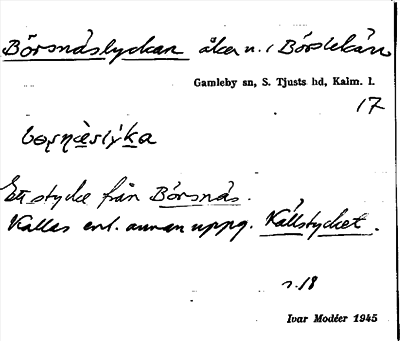 Börsnäslyckan åker n. i Börslekån
Gamleby sn, S. Tjusts hd, Kalm. l.
17
Ett stycke från Börsnäs.
Kallas enl. annan uppg. Källstycket.
n. 18
Ivar Modéer 1945